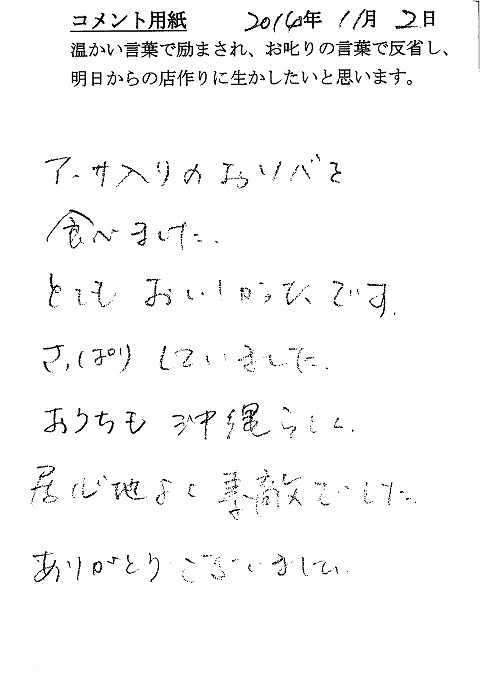 コメント用紙 2014年 11月 2日
温かい言葉で励まされ、お叱りの言葉で反省し、
明日からの店作りに生かしたいと思います。
アーサ入りのおソバを
食べました。
とても おいしかったです。
さっぱりしていました。
おうちも 沖縄らしく、
居心地よく素敵でした。
ありがとうございました。